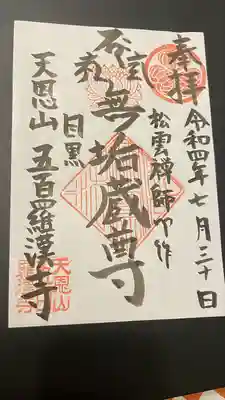 奉拝
令和四年七月三十日
松雲禅師
作
無垢蔵尊
目黒
天恩山 五百羅漢寺
天恩山